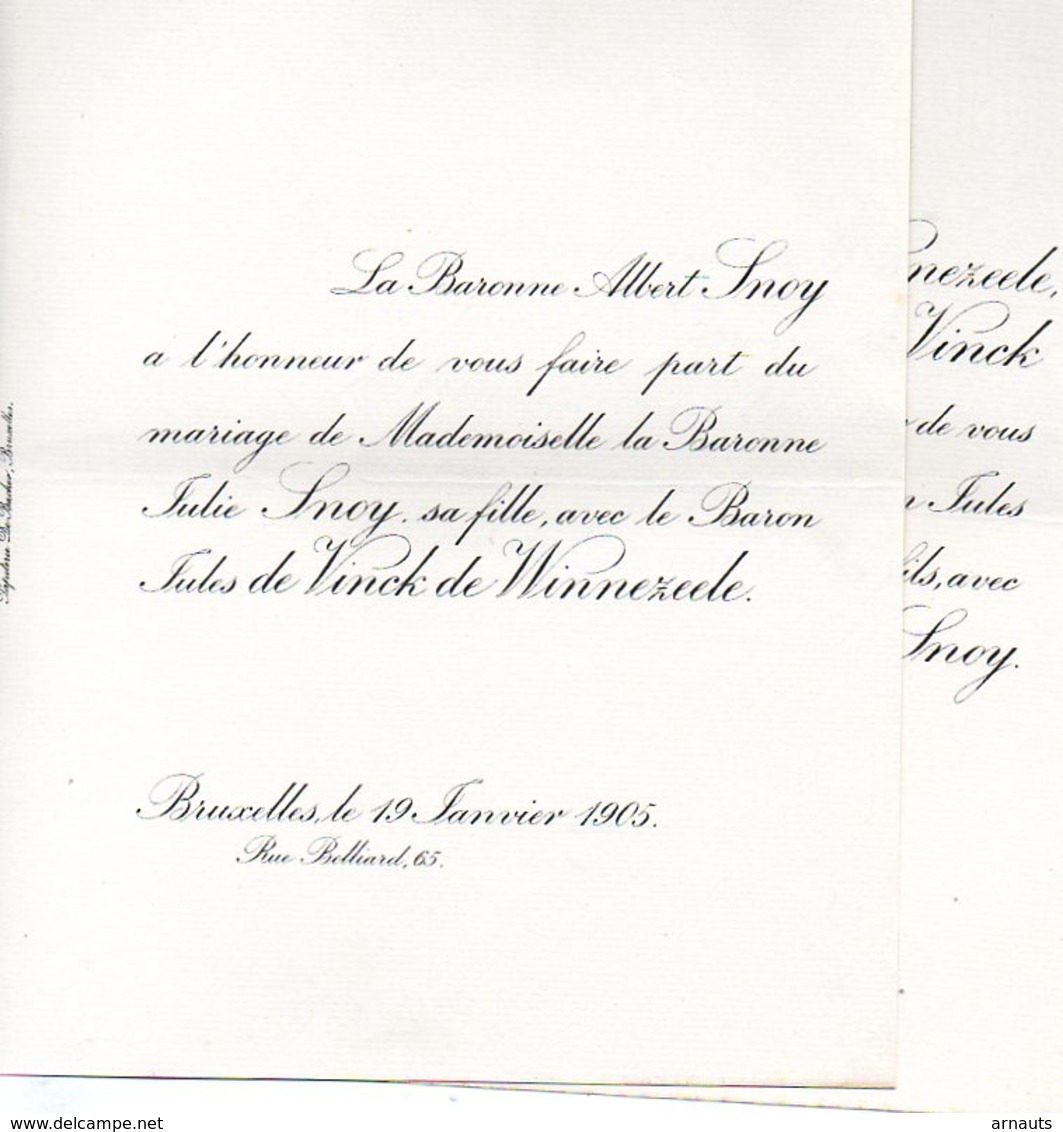 La Baronne Albert Snoy
a l'honneur de vous faire part du
mariage de Mademoiselle la Baronne
Julie Snoy, sa fille, avec le Baron
Jules de Vinck de Winnezeele.
Bruxelles, le 19 Janvier 1905.
Rue Belliard, 65.
Papeterie De Backer, Bruxelles.
nezeele,
Vinck
de vous
Jules
fils, avec
Snoy.
www.delcampe.net
arnauts